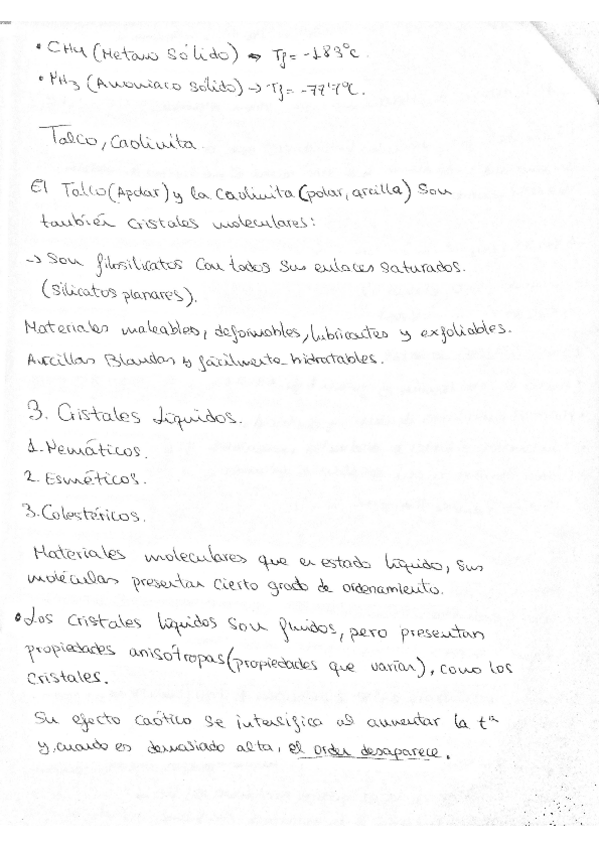 • CH4 (Metano Sólido) → Tf = -183°C.
• NH3 (Amoniaco sólido) → Tf = -77'7°C.
Talco, Caolinita.
El Talco (Apolar) y la Caolinita (polar, arcilla) Son
también cristales moleculares:
→ Son filosilicatos con todos sus enlaces saturados.
(silicatos planares).
Materiales maleables, deformables, lubricantes y exfoliables.
Arcillas Blandas y fácilmente hidratables.
3. Cristales Líquidos.
1. Nemáticos.
2. Esméticos.
3. Colestéricos.
Materiales moleculares que en estado líquido, sus
moléculas presentan cierto grado de ordenamiento.
• Los cristales líquidos son fluidos, pero presentan
propiedades anisótropas (propiedades que varían), como los
cristales.
Su efecto caótico se intensifica al aumentar la tª
y, cuando es demasiado alta, el orden desaparece.